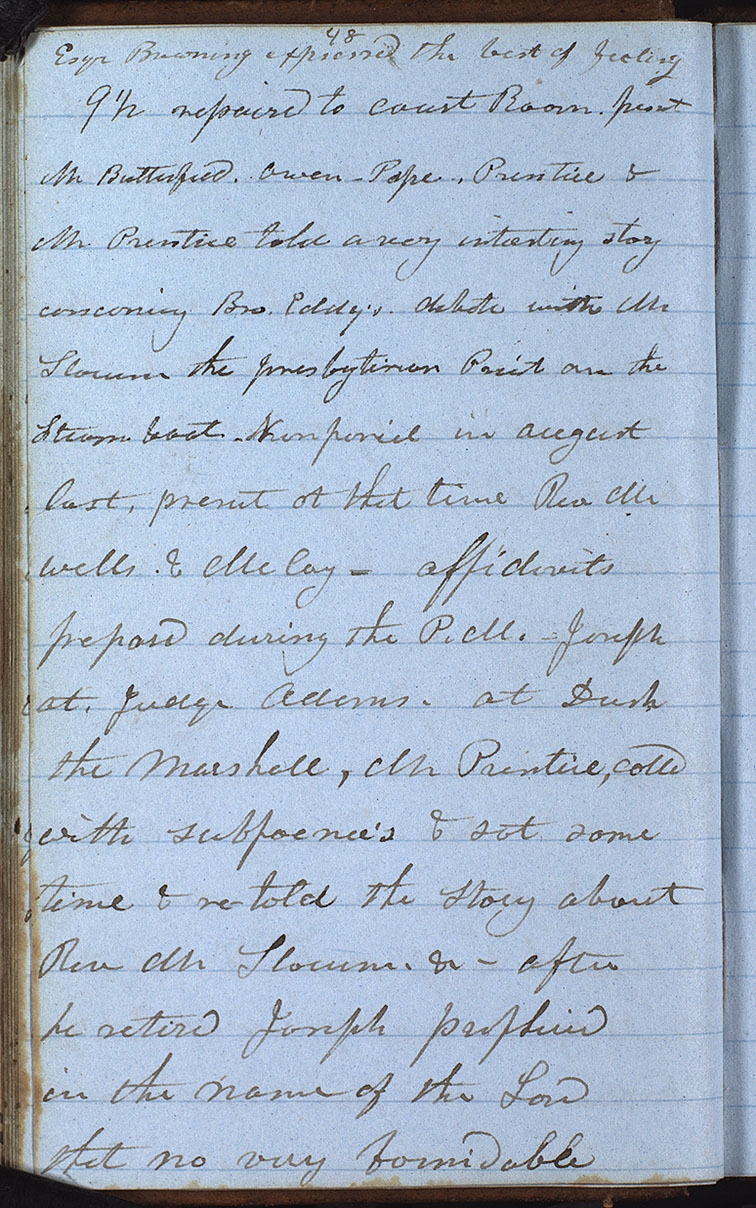 48
Esqr Browning expressed the best of feeling
9 1/2 repaired to court Room. presnt
Mr Butterfield. Owen - Pope. Prentice &
Mr Prentice told a very intersting story
concerning Bro. Eddy's. debate with Mr
Slocum the presbyterian Preist on the
Steam boat. Nonpariel in august
last, present at that time Rev Mr
wells. & McCoy - affidavits
prepard during the P.M. - Joseph
at. Judge Adams. at Dusk
the Marshall, Mr Prentice, called
with subpoenee's & sat some
time & re-told the story about
Rev Mr Slocum. &c - after
he retired Joseph prophsied
in the name of the Lord
that no very formidable